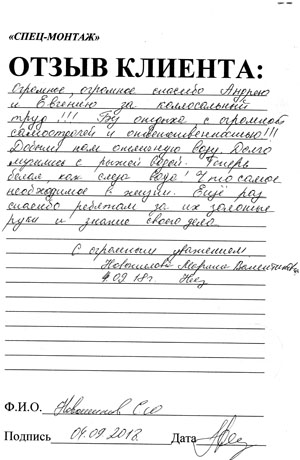 «СПЕЦ-МОНТАЖ»
ОТЗЫВ КЛИЕНТА:
Огромное, огромное спасибо Андрею
и Евгению за колоссальный
труд!!! Без отдыха с огромной
самоотдачей и
Добыли нам отличную воду. Долго
мучились с рыжей водой. Теперь
белая, как слеза вода! Что самое
необходимое в жизни. Ещё раз
спасибо ребятам за их золотые
руки и знание своего дела.
С огромным уважением
Марина Валентиновна
4.09.18г.
Ф.И.О.
Подпись 04.09.2018 Дата